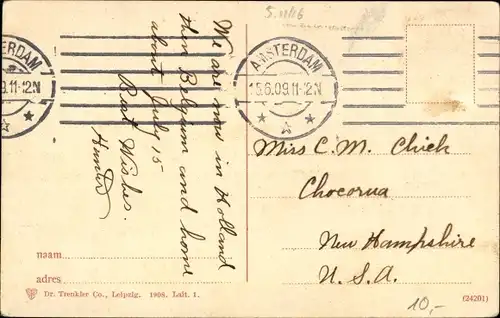 We are now in Holland
then Belgium and home
about July 15
Best Wishes.
Hunter
5.11/16
AMSTERDAM
15.6.09.11-12N
Miss C. M. Chick
Chocorua
New Hampshire
U.S.A.
naam
adres
Dr. Trenkler Co., Leipzig. 1908. Lait. 1.
(24201)
10,-